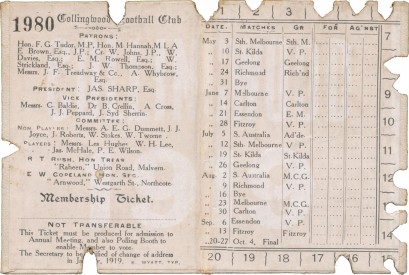 1980 Collingwood Football Club
PATRONS:
Hon. F. G. Tudor, M.P., Hon. M. Hannah, M.L.A.
E. Brown, Esq., J.P.; Cr. W. Johns, J.P., W.
Davies, Esq.; E. M. Rowell, Esq., W.
Strickland, Esq.; J. W. Thompson, Esq.,
Messrs. J. F. Treadway & Co., A. Whybrow,
Esq.
PRESIDENT JAS. SHARP, Esq.
VICE PRESIDENTS:
Messrs. C. Baldie, Dr B. Crellin, A Cross,
J. J. Peppard, J. Syd Sherrin
COMMITTEE:
NON. PLAYERS: Messrs. A. E. G. Dummett, J. J.
Joyce, J. Roberts, W. Stokes, W. Twome
PLAYERS: Messrs. Les Hughes, W. H. Lee,
Jas. McHale, P. E. Wilson.
R T RUSH, HON TREAS
"Raheen," Union Road, Malvern.
E W COPELAND HON. SEC.
"Arnwood," Westgarth St., Northcote.
Membership Ticket.
NOT TRANSFERABLE
This Ticket must be produced for admission to
Annual Meeting, and also Polling Booth to
enable Member to vote.
The Secretary to be notified of change of address
1919.
2 3
DATE. MATCHES GR FOR AG'NST
May 3 Sth. Melbourne Sth. M.
„ 10 St Kilda V. P.
„ 17 Geelong Geelong
„ 24 Richmond Rich'nd
„ 31 Bye
June 7 Melbourne V. P.
„ 14 Carlton Carlton
„ 21 Essendon E. M.
„ 28 Fitzroy V. P.
July 5 S. Australia Ad'de.
„ 12 Sth. Melbourne V. P.
„ 19 St Kilda St Kilda
„ 26 Geelong V. P.
Aug. 2 S. Australia M.C.G.
„ 9 Richmond V. P.
„ 16 Bye
„ 23 Melbourne M.C.G.
„ 30 Carlton V. P.
Sep. 6 Essendon V. P.
„ 13 Fitzroy Fitzroy
„ 20-27 Oct. 4, Final
7
14
20 19 18 17 16